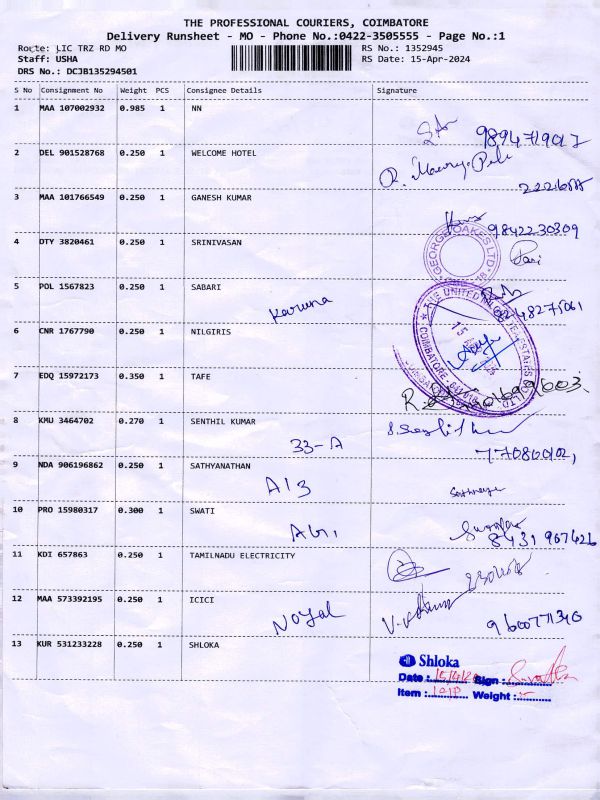 THE PROFESSIONAL COURIERS, COIMBATORE
Delivery Runsheet - MO - Phone No.:0422-3505555 - Page No.:1
Route: LIC TRZ RD MO RS No.: 1352945
Staff: USHA RS Date: 15-Apr-2024
DRS No.: DCJB135294501
S No Consignment No Weight PCS Consignee Details Signature
1 MAA 107002932 0.985 1 NN
2 DEL 901528768 0.250 1 WELCOME HOTEL
3 MAA 101766549 0.250 1 GANESH KUMAR
9842230309
4 DTY 3820461 0.250 1 SRINIVASAN
GEORGE OAKES LTD
5 POL 1567823 0.250 1 SABARI
Karuna
6 CNR 1767790 0.250 1 NILGIRIS
THE UNITED
COIMBATORE
7 EDQ 15972173 0.350 1 TAFE
8 KMU 3464702 0.270 1 SENTHIL KUMAR
33-A
9 NDA 906196862 0.250 1 SATHYANATHAN
A13
10 PRO 15980317 0.300 1 SWATI
8431 967426
11 KDI 657863 0.250 1 TAMILNADU ELECTRICITY
12 MAA 573392195 0.250 1 ICICI
Noyal
9600771340
13 KUR 531233228 0.250 1 SHLOKA
Shloka
Date : Sign :
Item : Weight :